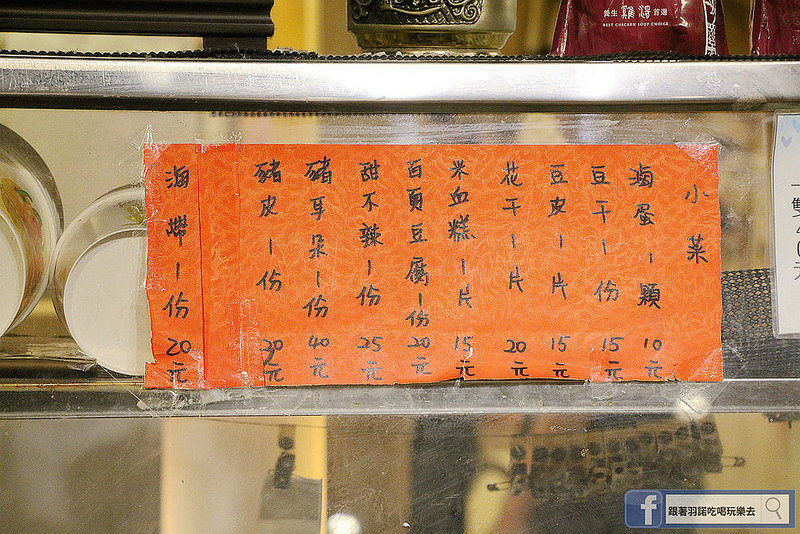 養生 雞湯 首選
BEST CHICKEN SOUP CHOICE
小菜
滷蛋1顆 10元
豆干1份 15元
豆皮1片 15元
花干1片 20元
米血糕1片 15元
百頁豆腐1份 20元
甜不辣1份 25元
豬耳朵1份 40元
豬皮1份 元
海帶1份 20元
f 跟著羽諾吃喝玩樂去